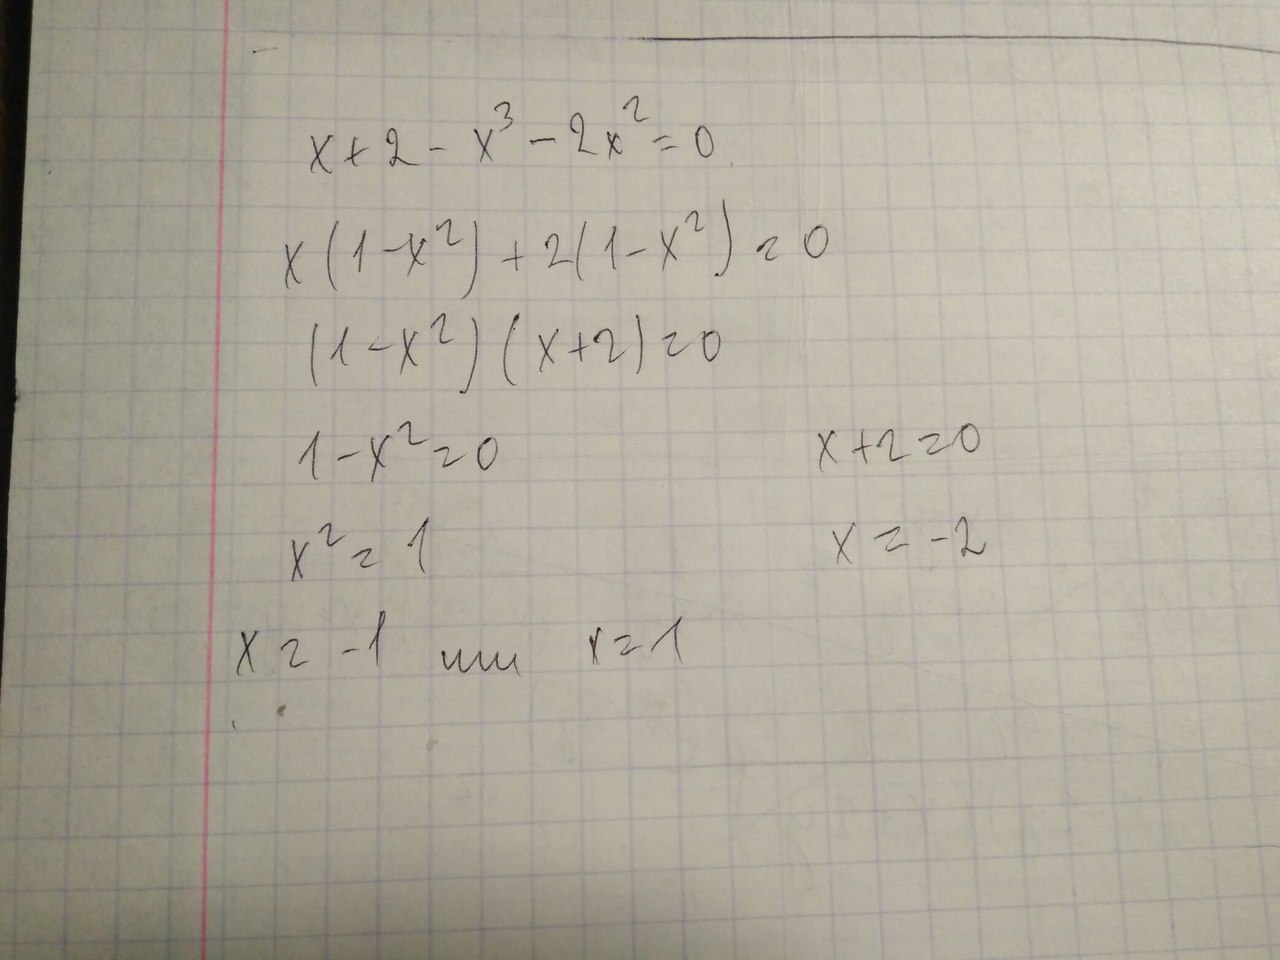 x+2-x³-2x²=0
x(1-x²)+2(1-x²)=0
(1-x²)(x+2)=0
1-x²=0 x+2=0
x²=1 x=-2
x=-1 или x=1